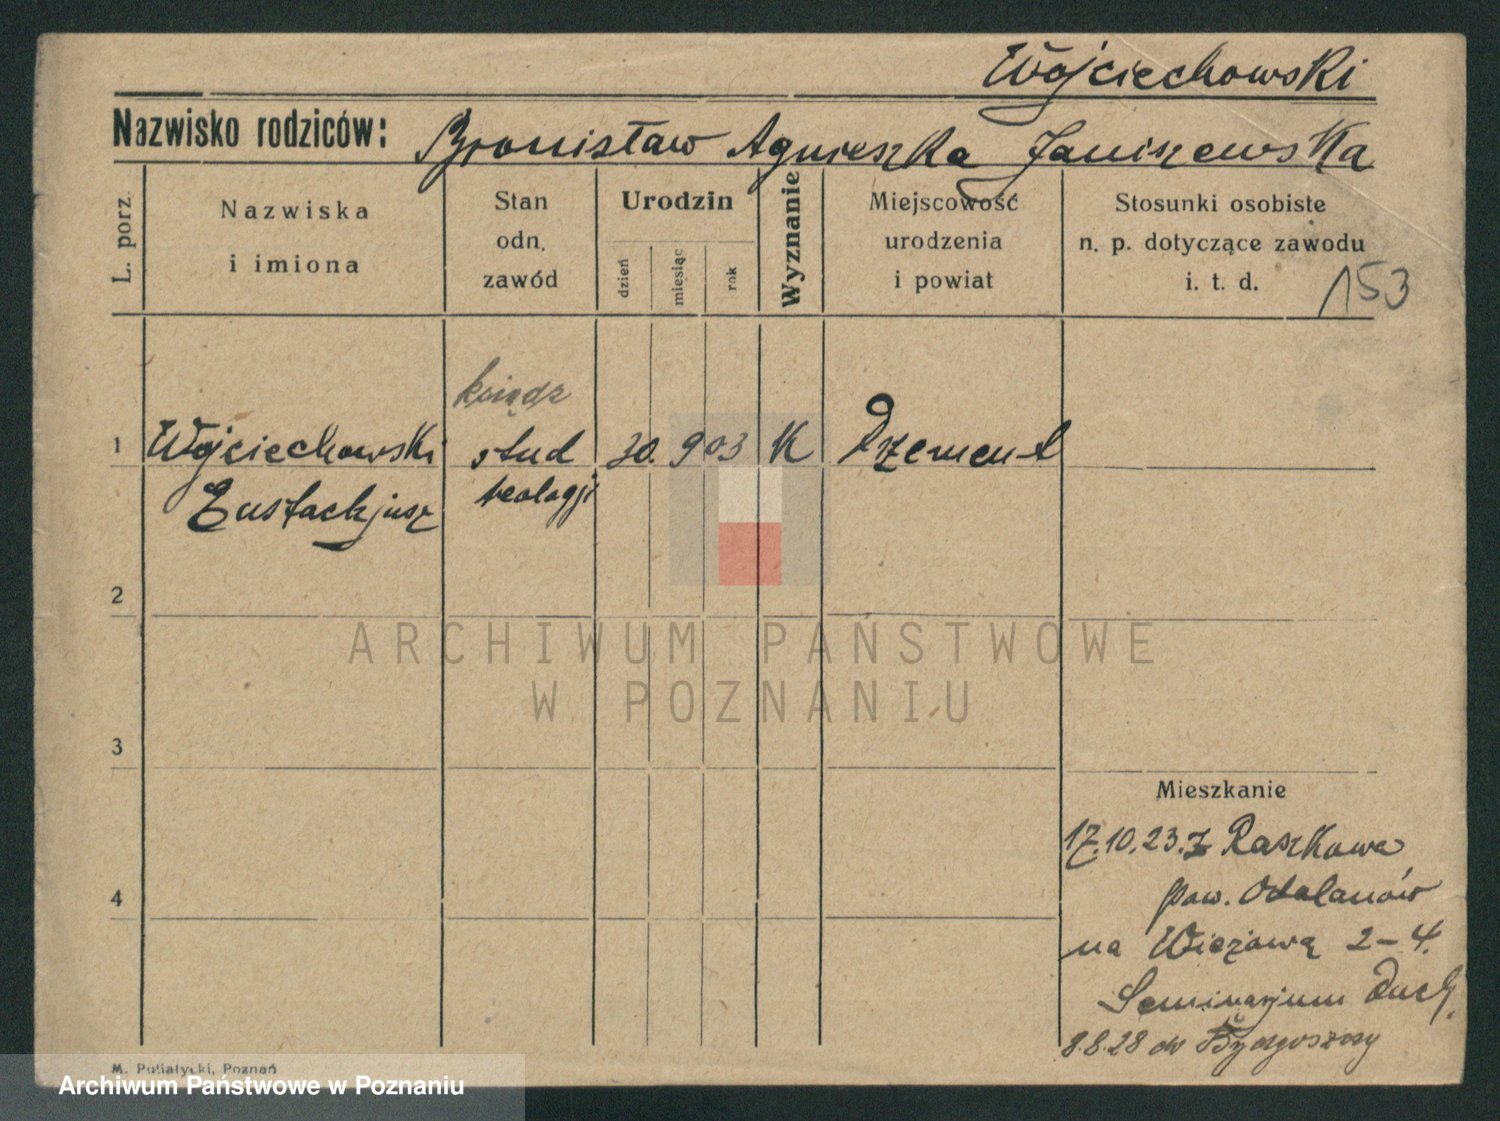 Wojciechowski
Nazwisko rodziców: Bronisław Agnieszka Janiszewska
L. porz.
Nazwiska
i imiona
Stan
odn.
zawód
Urodzin
dzień
miesiąc
rok
Wyznanie
Miejscowość
urodzenia
i powiat
Stosunki osobiste
n. p. dotyczące zawodu
i. t. d.
153
ksiądz
1 Wojciechowski stud 20. 9 03 K
Eustachjusz teologji
2
3
4
Mieszkanie
17.10.23. z Raszkowa
pow. Odolanów
na Wieżową 2-4.
Seminarjum Duch.
8.8.28 do Bydgoszczy
ARCHIWUM PAŃSTWOWE
W POZNANIU
M. Putiatycki, Poznań
Archiwum Państwowe w Poznaniu